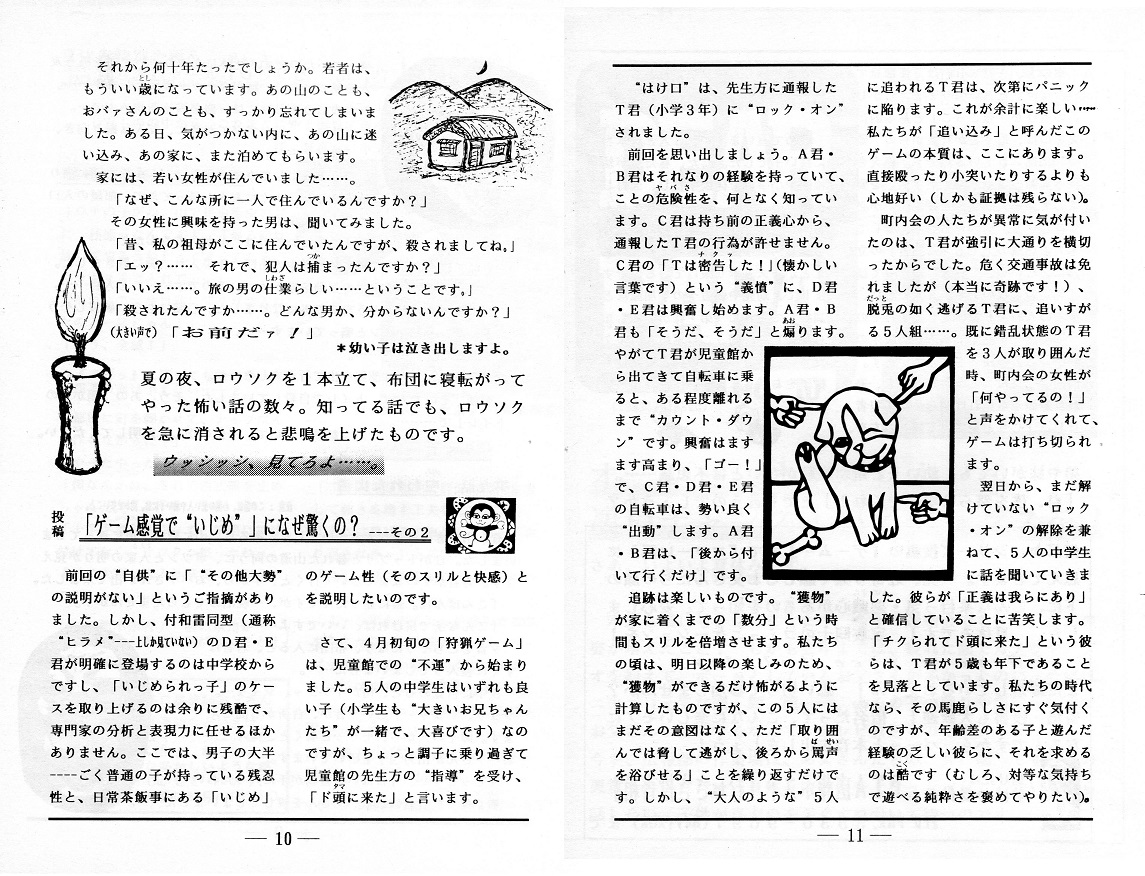 それから何十年たったでしょうか。若者は、
もういい歳になっています。あの山のことも、
おバァさんのことも、すっかり忘れてしまいま
した。ある日、気がつかない内に、あの山に迷
い込み、あの家に、また泊めてもらいます。
家には、若い女性が住んでいました……。
「なぜ、こんな所に一人で住んでいるんですか？」
その女性に興味を持った男は、聞いてみました。
「昔、私の祖母がここに住んでいたんですが、殺されましてね。」
「エッ？…… それで、犯人は捕まったんですか？」
「いいえ……。旅の男の仕業らしい……ということです。」
「殺されたんですか……。どんな男か、分からないんですか？」
(大きい声で)「お前だァ！」
＊幼い子は泣き出しますよ。
夏の夜、ロウソクを１本立て、布団に寝転がって
やった怖い話の数々。知ってる話でも、ロウソク
を急に消されると悲鳴を上げたものです。
ウッシッシ、見てろよ……。
投稿 「ゲーム感覚で“いじめ”」になぜ驚くの？ ---その２
前回の“自供”に「“その他大勢”
の説明がない」というご指摘があり
ました。しかし、付和雷同型（通称
“ヒラメ”---上しか見ていない）のＤ君・Ｅ
君が明確に登場するのは中学校から
ですし、「いじめられっ子」のケー
スを取り上げるのは余りに残酷で、
専門家の分析と表現力に任せるほか
ありません。ここでは、男子の大半
----ごく普通の子が持っている残忍
性と、日常茶飯事にある「いじめ」
のゲーム性（そのスリルと快感）と
を説明したいのです。
さて、４月初旬の「狩猟ゲーム」
は、児童館での“不運”から始まり
ました。５人の中学生はいずれも良
い子（小学生も“大きいお兄ちゃん
たち”が一緒で、大喜びです）なの
ですが、ちょっと調子に乗り過ぎて
児童館の先生方の“指導”を受け、
「ド頭に来た」と言います。
— 10 —
“はけ口”は、先生方に通報した
Ｔ君（小学３年）に“ロック・オン”
されました。
前回を思い出しましょう。Ａ君・
Ｂ君はそれなりの経験を持っていて、
ことの危険性を、何となく知ってい
ます。Ｃ君は持ち前の正義心から、
通報したＴ君の行為が許せません。
Ｃ君の「Ｔは密告した！」(懐かしい
言葉です）という“義憤”に、Ｄ君
・Ｅ君は興奮し始めます。Ａ君・Ｂ
君も「そうだ、そうだ」と煽ります。
やがてＴ君が児童館か
ら出てきて自転車に乗
ると、ある程度離れる
まで“カウント・ダウ
ン”です。興奮はます
ます高まり、「ゴー！」
で、Ｃ君・Ｄ君・Ｅ君
の自転車は、勢い良く
“出動”します。Ａ君
・Ｂ君は、「後から付
いて行くだけ」です。
追跡は楽しいものです。“獲物”
が家に着くまでの「数分」という時
間もスリルを倍増させます。私たち
の頃は、明日以降の楽しみのため、
“獲物”ができるだけ怖がるように
計算したものですが、この５人には
まだその意図はなく、ただ「取り囲
んでは脅して逃がし、後ろから罵声
を浴びせる」ことを繰り返すだけで
す。しかし、“大人のような”５人
に追われるＴ君は、次第にパニック
に陥ります。これが余計に楽しい……
私たちが「追い込み」と呼んだこの
ゲームの本質は、ここにあります。
直接殴ったり小突いたりするよりも
心地好い（しかも証拠は残らない)。
町内会の人たちが異常に気が付い
たのは、Ｔ君が強引に大通りを横切
ったからでした。危く交通事故は免
れましたが（本当に奇跡です！）、
脱兎の如く逃げるＴ君に、追いすが
る５人組……。既に錯乱状態のＴ君
を３人が取り囲んだ
時、町内会の女性が
「何やってるの！」
と声をかけてくれて、
ゲームは打ち切られ
ます。
翌日から、まだ解
けていない“ロック
・オン”の解除を兼
ねて、５人の中学生
に話を聞いていきま
した。彼らが「正義は我らにあり」
と確信していることに苦笑します。
「チクられてド頭に来た」という彼
らは、Ｔ君が５歳も年下であること
を見落としています。私たちの時代
なら、その馬鹿らしさにすぐ気付く
のですが、年齢差のある子と遊んだ
経験の乏しい彼らに、それを求める
のは酷です（むしろ、対等な気持ち
で遊べる純粋さを褒めてやりたい)。
— 11 —